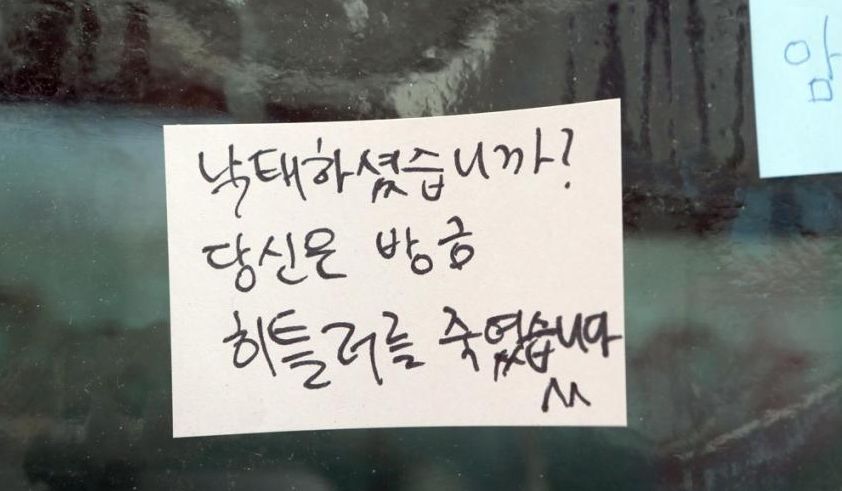 낙태하셨습니까?
당신은 방금
히틀러를 죽였습니다
^^
암